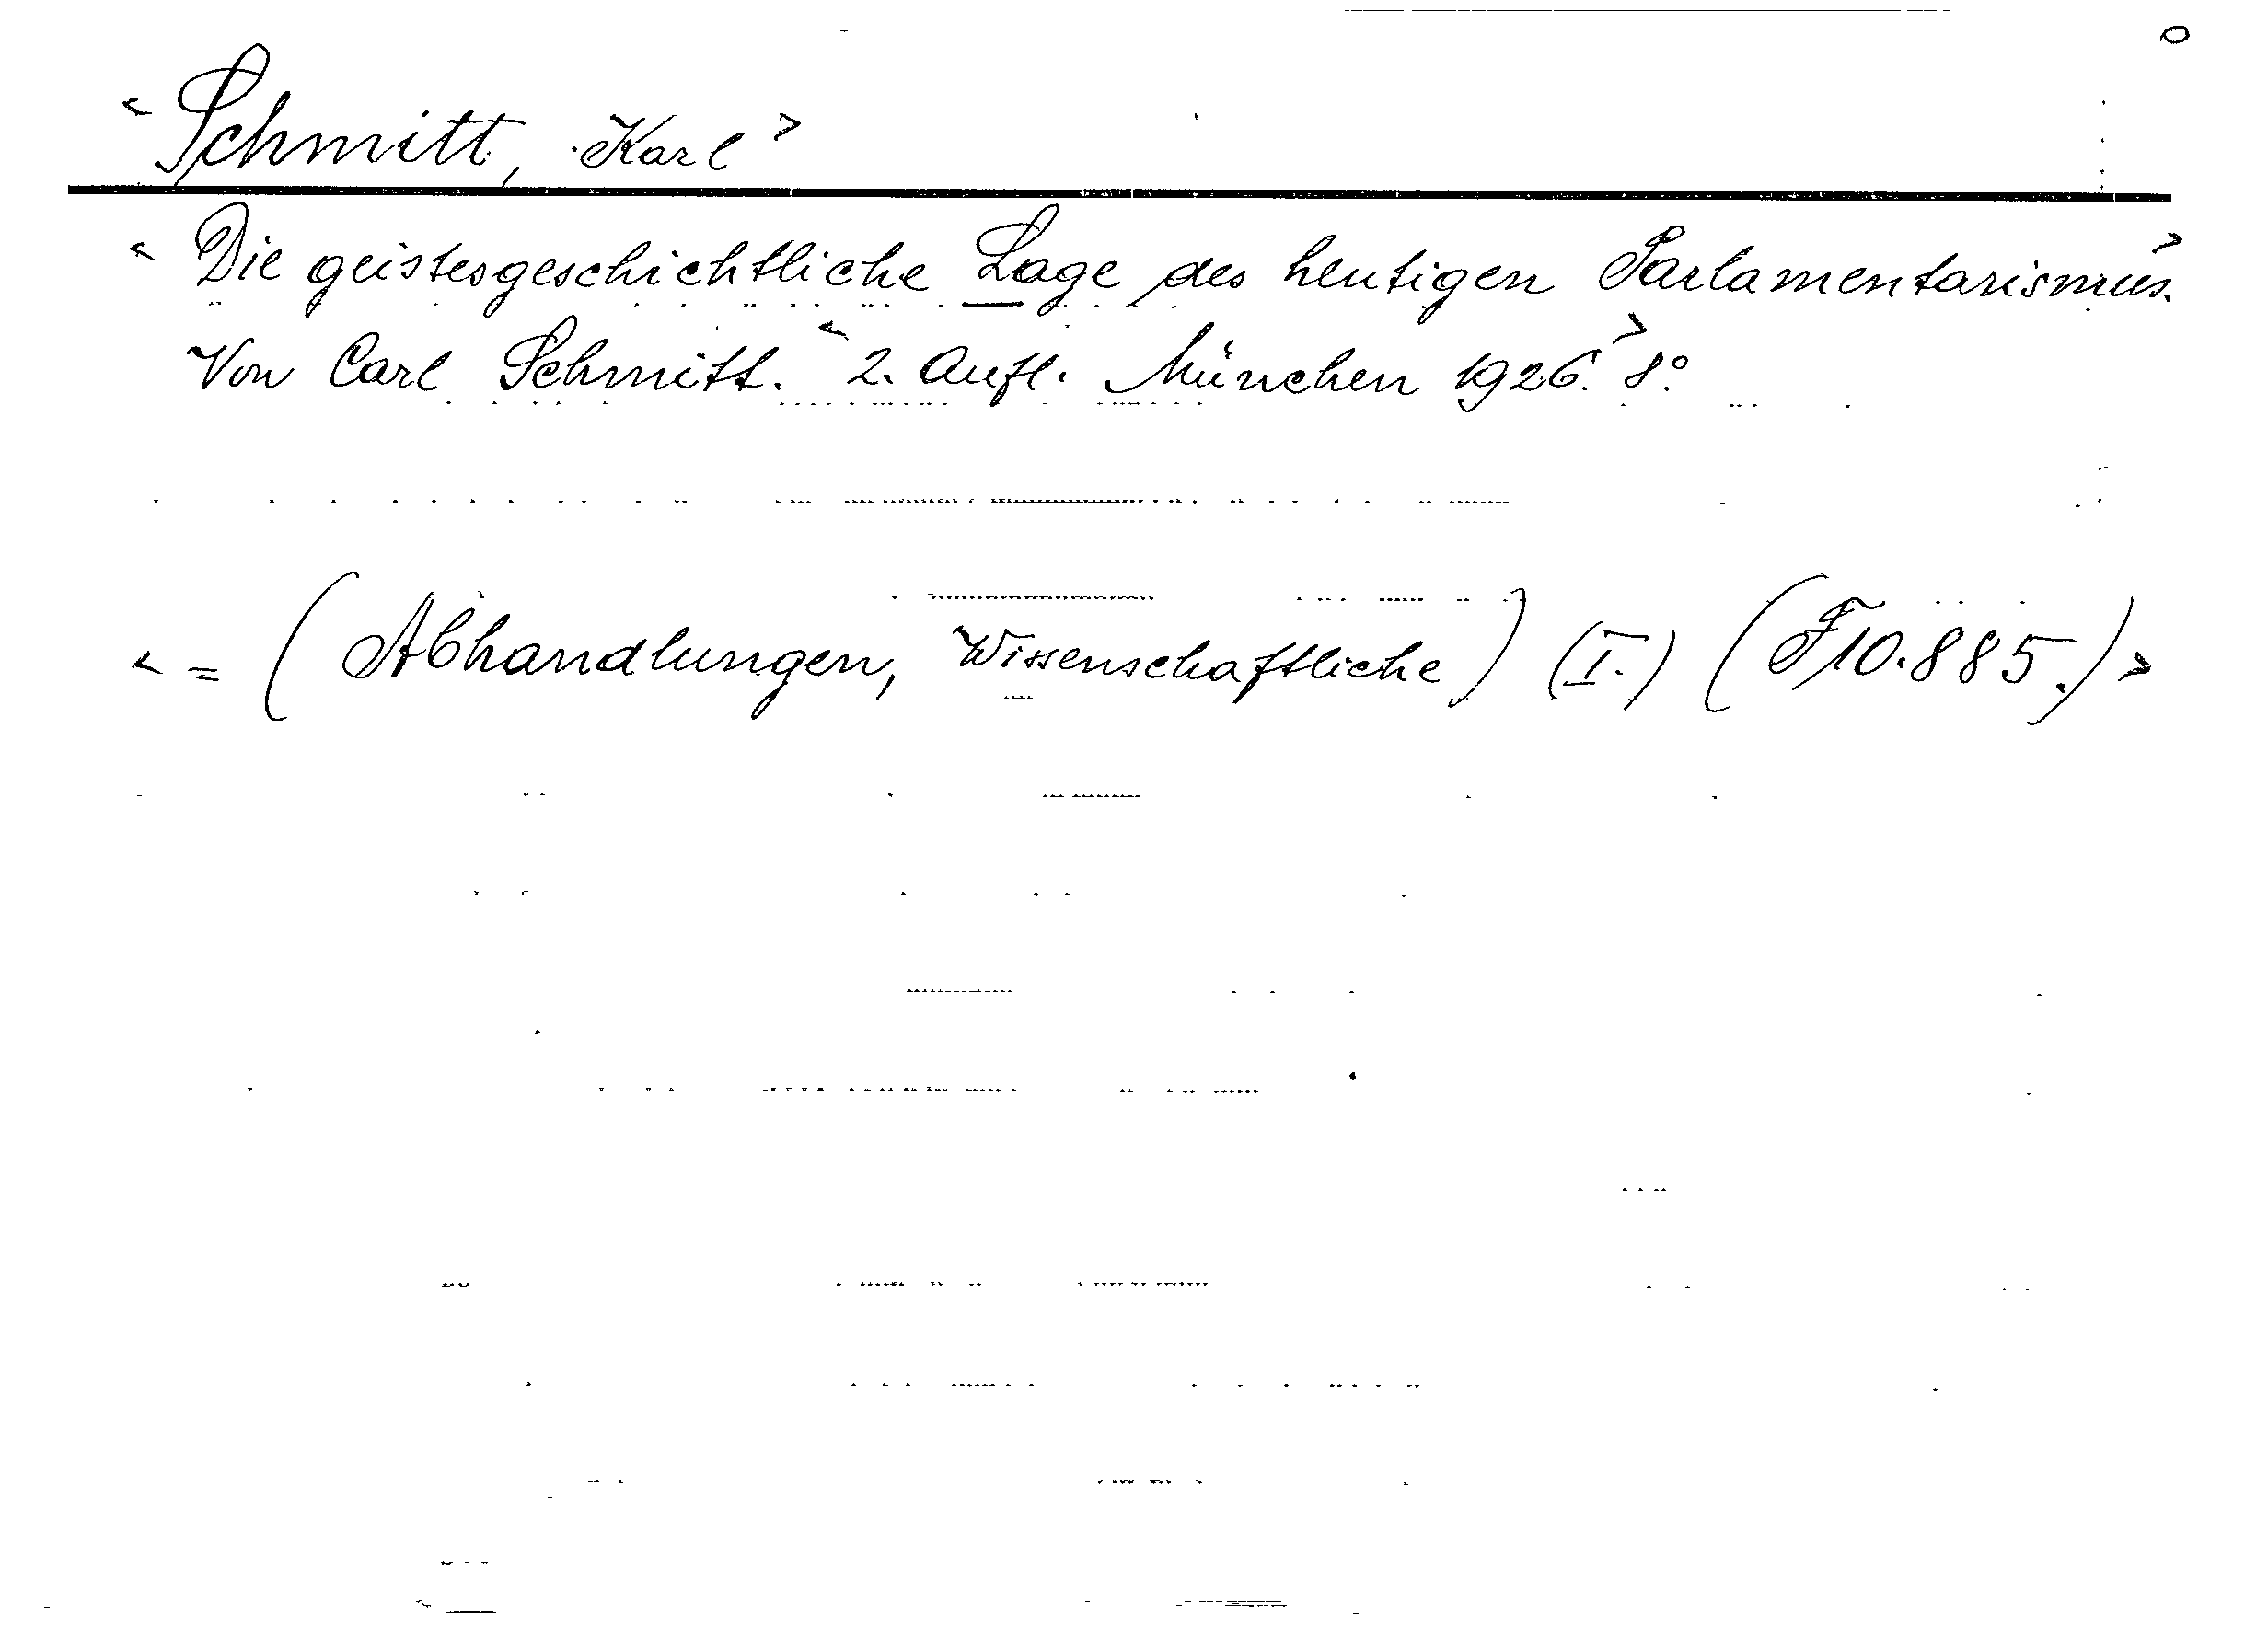 < Schmitt, Karl >
< Die geistesgeschichtliche Lage des heutigen Parlamentarismus. >
Von Carl Schmitt. < 2. Aufl. München 1926. > 8°
< = (Abhandlungen, Wissenschaftliche) (I.) (F10.885.) >